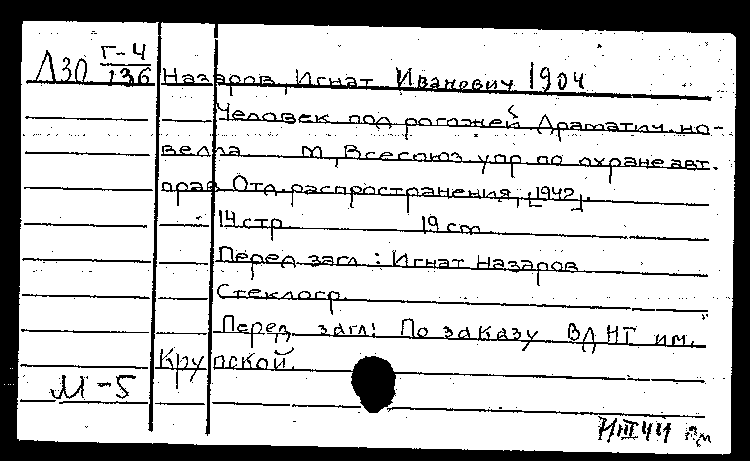 Л30 Г-4
136 Назаров, Игнат Иванович 1904
Человек под рогожей Драматич. но-
велла М, Всесоюз упр по охране авт.
прав Отд. распространения, [1942].
14 стр. 19 см
Перед загл : Игнат Назаров
Стеклогр.
Перед загл: По заказу ВДНТ им.
Крупской.
М-5
III 44